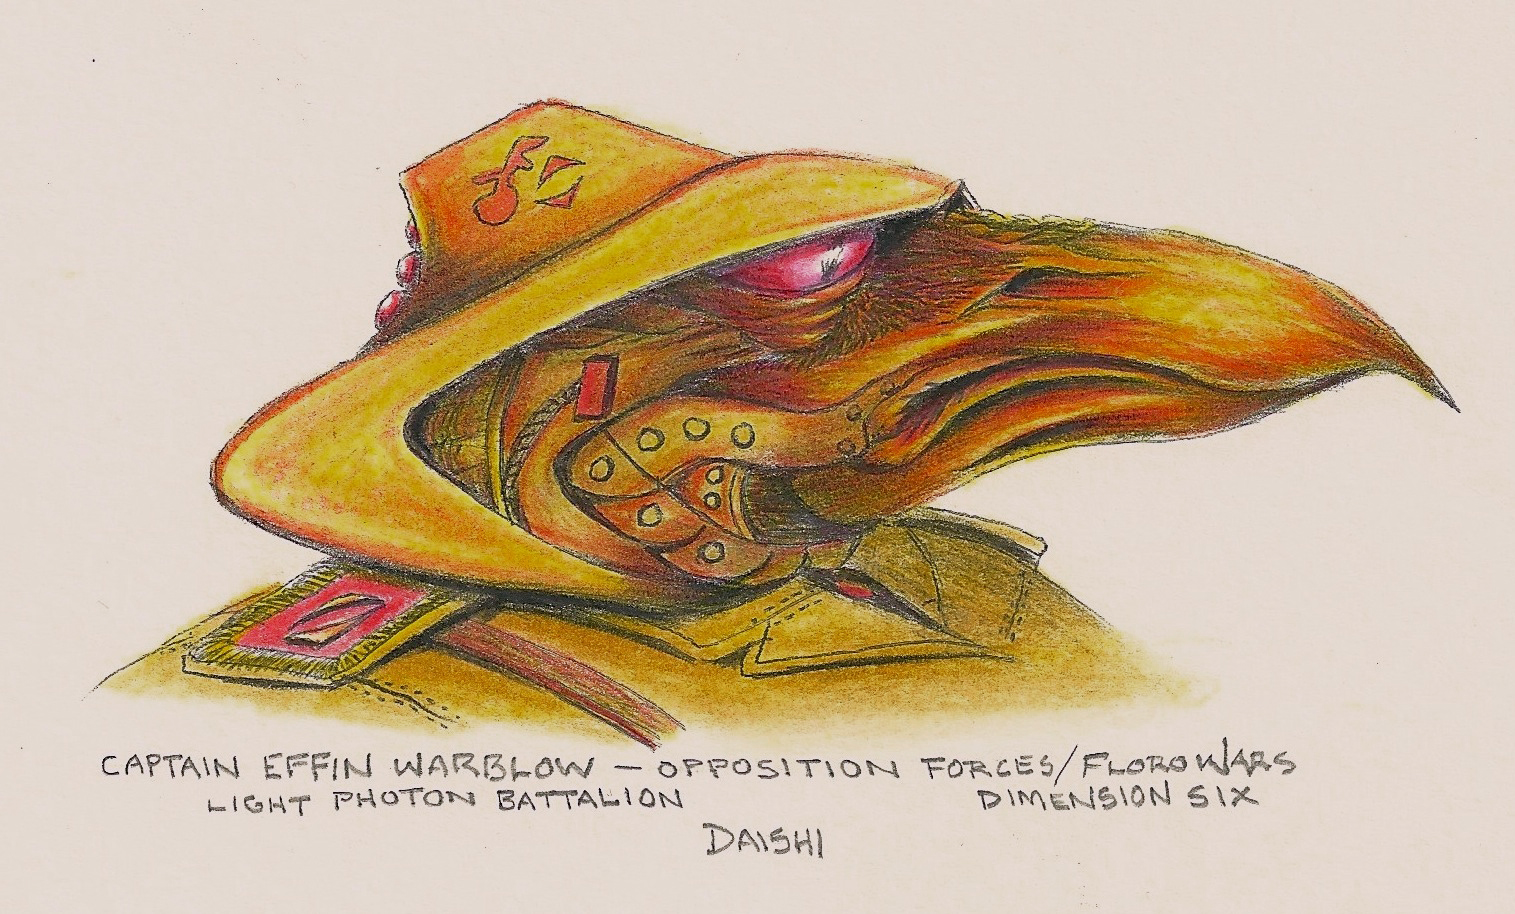 CAPTAIN EFFIN WARBLOW — OPPOSITION FORCES/FLORO WARS
LIGHT PHOTON BATTALION DIMENSION SIX
DAISHI